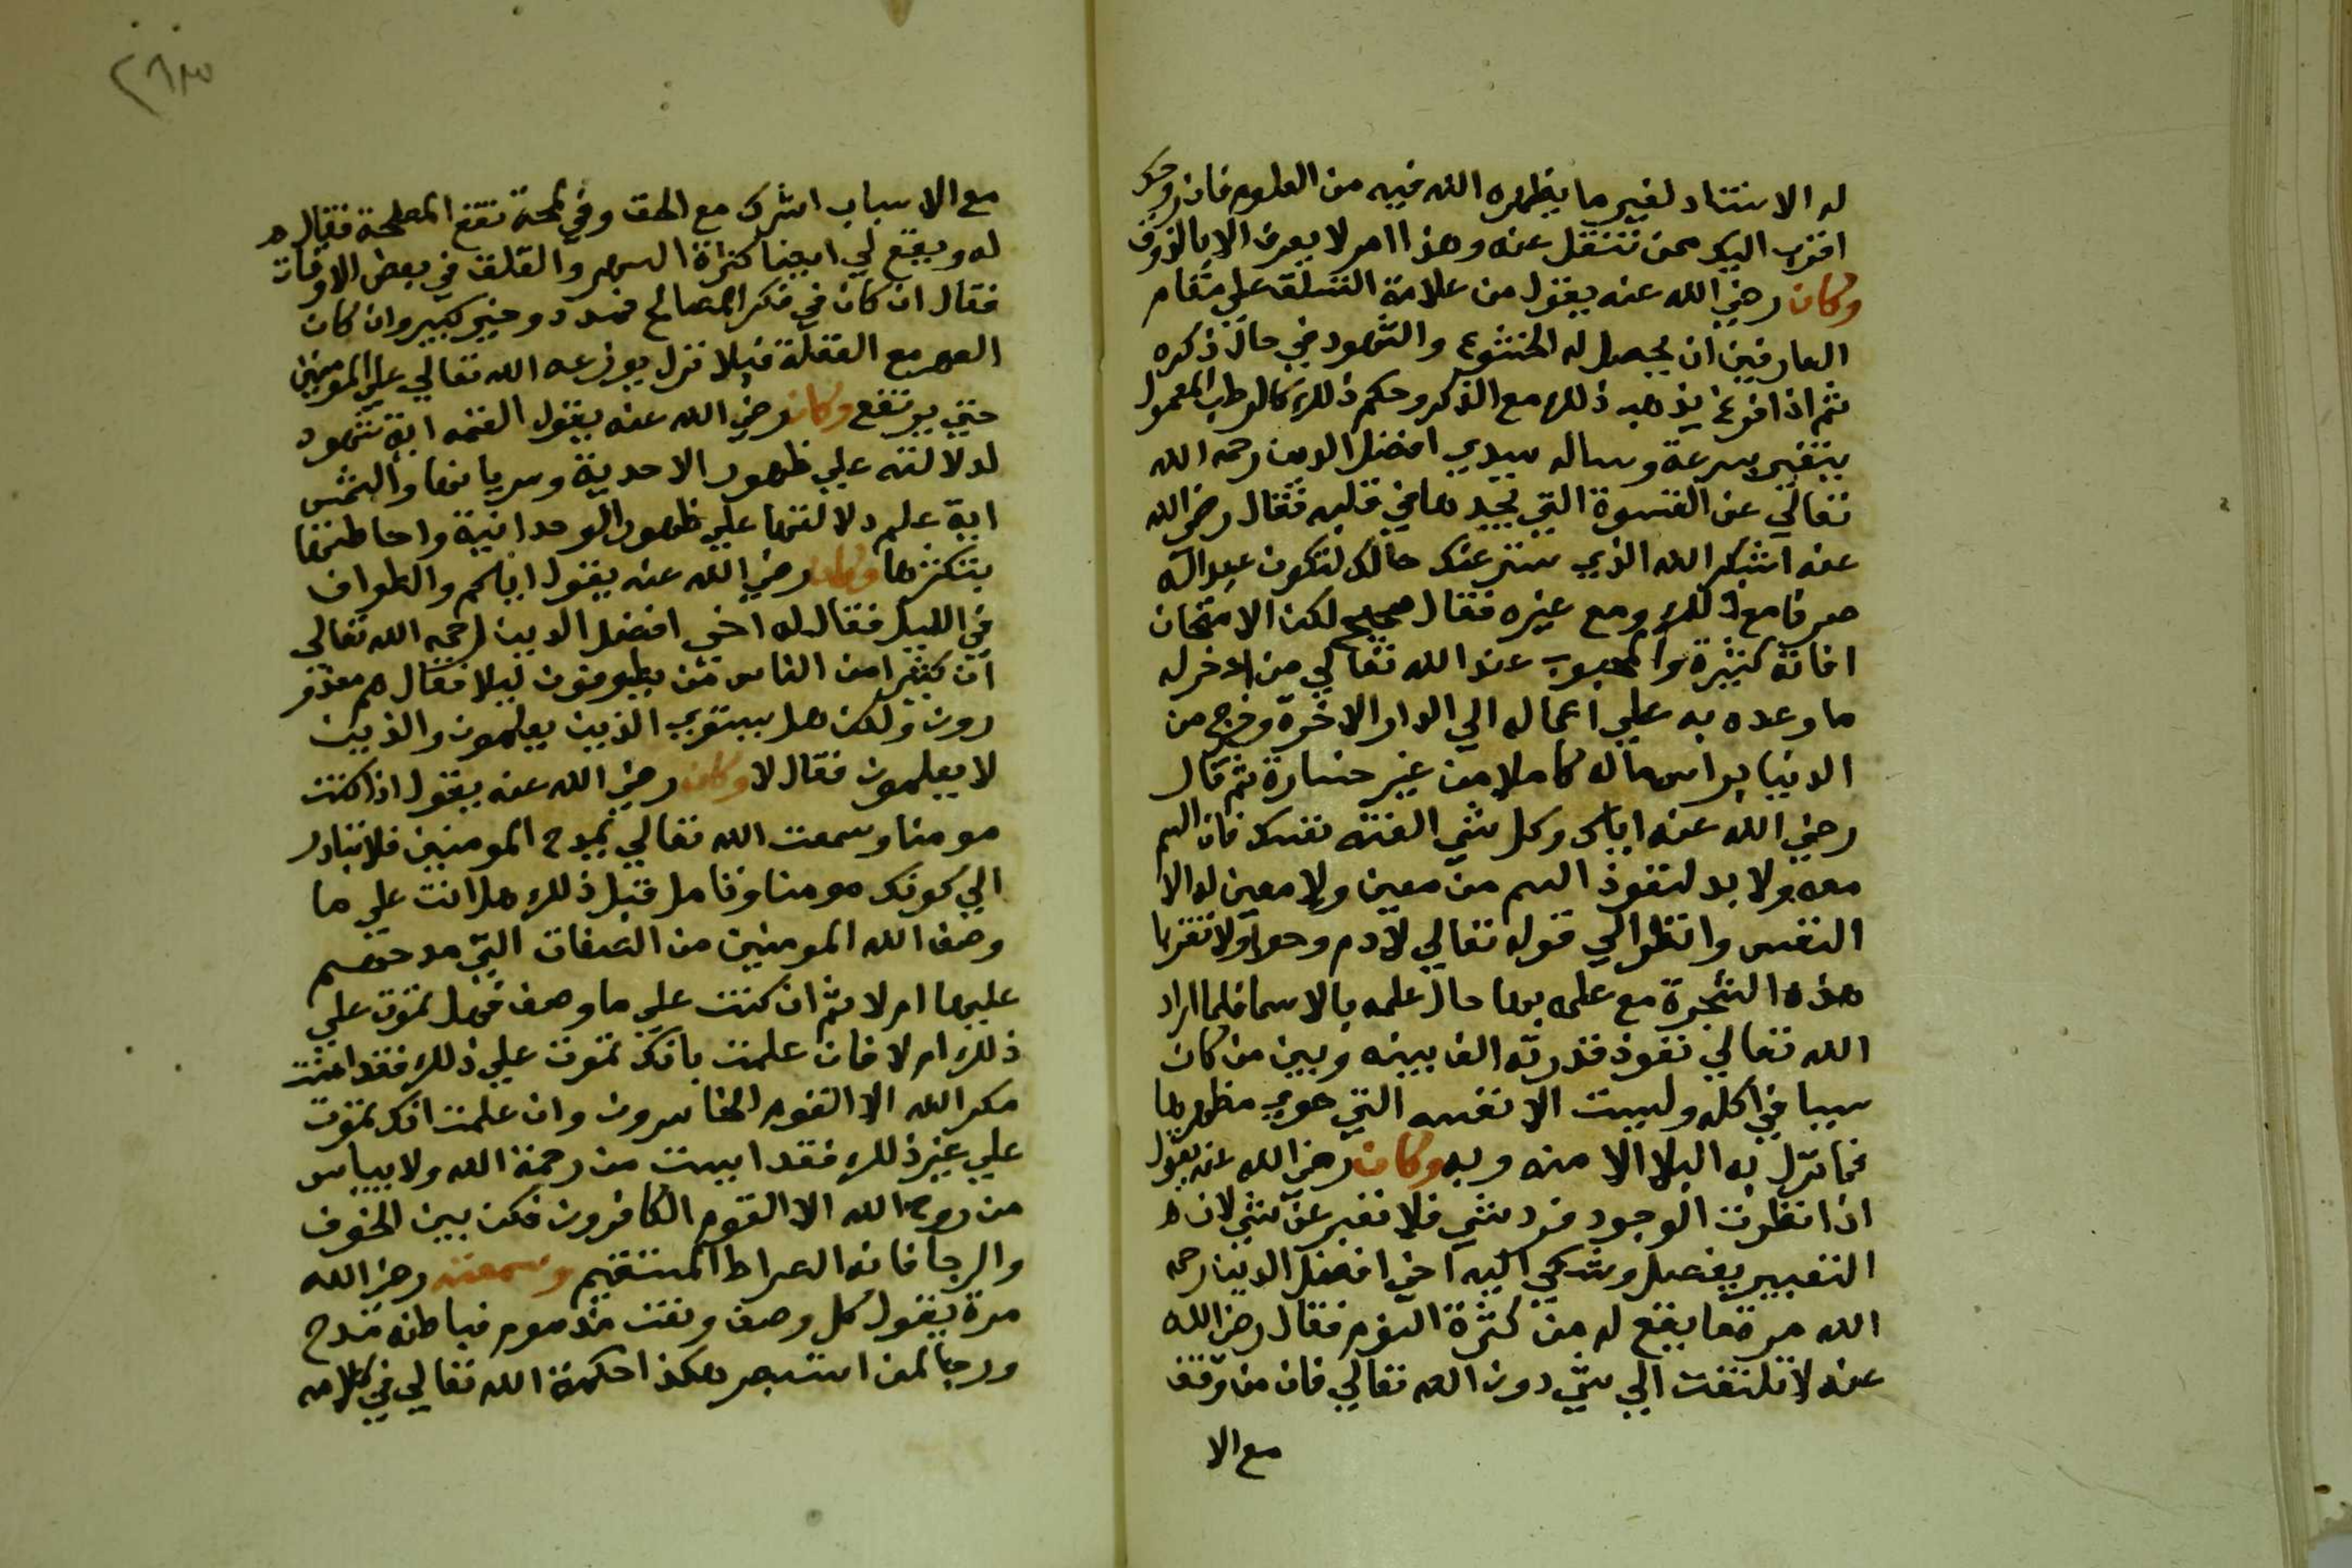 له الاستناد لغير ما يظهره الله فيه من العلوم فان روحك
اقرب اليك ممن تنقل عنه وهذا امر لا يعرف الا بالذوق
وكان رضي الله عنه يقول من علامة التسلق علي مقام
العارفين ان يحصل له الخشوع والشهود في حال ذكره
ثم اذا فرغ يذهب ذلك مع الذكر وحكم ذلك كالرطب المعمول
يتغير بسرعة وساله سيدي افضل الدين رحمه الله
تعالي عن القسوة التي يجدها في قلبه فقال رضي الله
عنه اشكر الله الذي ستر عنك حالك لتكون عبد الله
صرفا مع ذلك ومع غيره فقال صحيح لكن الامتحان
افاته كثيرة والمحبوب عند الله تعالي من ادخر له
ما وعده به علي اعماله الي الدار الاخرة وخرج من
الدنيا براس ماله كاملا من غير خسارة ثم قال
رضي الله عنه اياك وكل شي الفته نفسك فان السم
معه ولا بد لنفوذ السم من معين ولا معين له الا
النفس وانظر الي قوله تعالي لادم وحوا ولا تقربا
هذه الشجرة مع علمه بها حال علمه بالاسما فلما اراد
الله تعالي نفوذ قدرته الف بينه وبين من كان
سببا في اكله وليست الا نفسه التي حوي مظهرها
فما نزل به البلا الا منه وبه وكان رضي الله عنه يقول
اذا نظرت الوجود فرد شي فلا تغير عن شي لان ه
التغيير يفصل وشكي اليه اخي افضل الدين رحمه
الله مرة ما يقع له من كثرة النوم فقال رضي الله
عنه لا تلتفت الي شي دون الله تعالي فان من وقف
مع الا
٢٨٣
مع الاسباب اشرك مع الحق وفي لمحة تقع المصلحة فقال ه
له ويقع لي ايضا كثرة السهر والقلق في بعض الاوقات
فقال ان كان في فكر المصالح فمدد وخير كبير وان كان
السهر مع الغفلة فبلا نزل يوزعه الله تعالي علي المومنين
حتي يرتفع وكان رضي الله عنه يقول القمر اية شهود
لدلالته علي ظهور الاحدية وسريانها والشمس
اية علم دلالتها علي ظهور الوحدانية واحاطتها
بتكثرها وكان رضي الله عنه يقول اياكم والطواف
في الليل فقال له اخي افضل الدين رحمه الله تعالي
ان كثيرا من الناس يطوفون ليلا فقال هم معذو
رون ولكن هل يستوي الذين يعلمون والذين
لا يعلمون فقال لا وكان رضي الله عنه يقول اذا كنت
مومنا وسمعت الله تعالي يمدح المومنين فلا تبادر
الي كونك مومنا وتامل قبل ذلك هل انت علي ما
وصف الله المومنين من الصفات التي مدحهم
عليها ام لا ثم ان كنت علي ما وصف فهل تموت علي
ذلك ام لا فان علمت بانك تموت علي ذلك فقد امنت
مكر الله الا القوم الخاسرون وان علمت انك تموت
علي غير ذلك فقد ايست من رحمة الله ولا يياس
من روح الله الا القوم الكافرون فكن بين الخوف
والرجا فانه الصراط المستقيم وسمعته رضي الله
مرة يقول كل وصف ونعت مذموم فباطنه مدح
ورجا لمن استبصر هكذا حكمة الله تعالي في كلامه